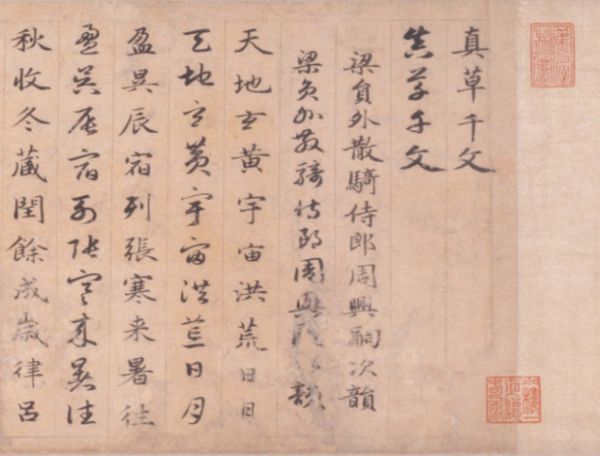 真草千文
真草千文
梁員外散騎侍郎周興嗣次韻
梁員外散騎侍郎周興韻
天地玄黃宇宙洪荒日月
天地玄黃宇宙洪荒日月
盈昃辰宿列張寒来暑往
盈昃辰宿列張寒来暑往
秋收冬藏閏餘成歲律呂